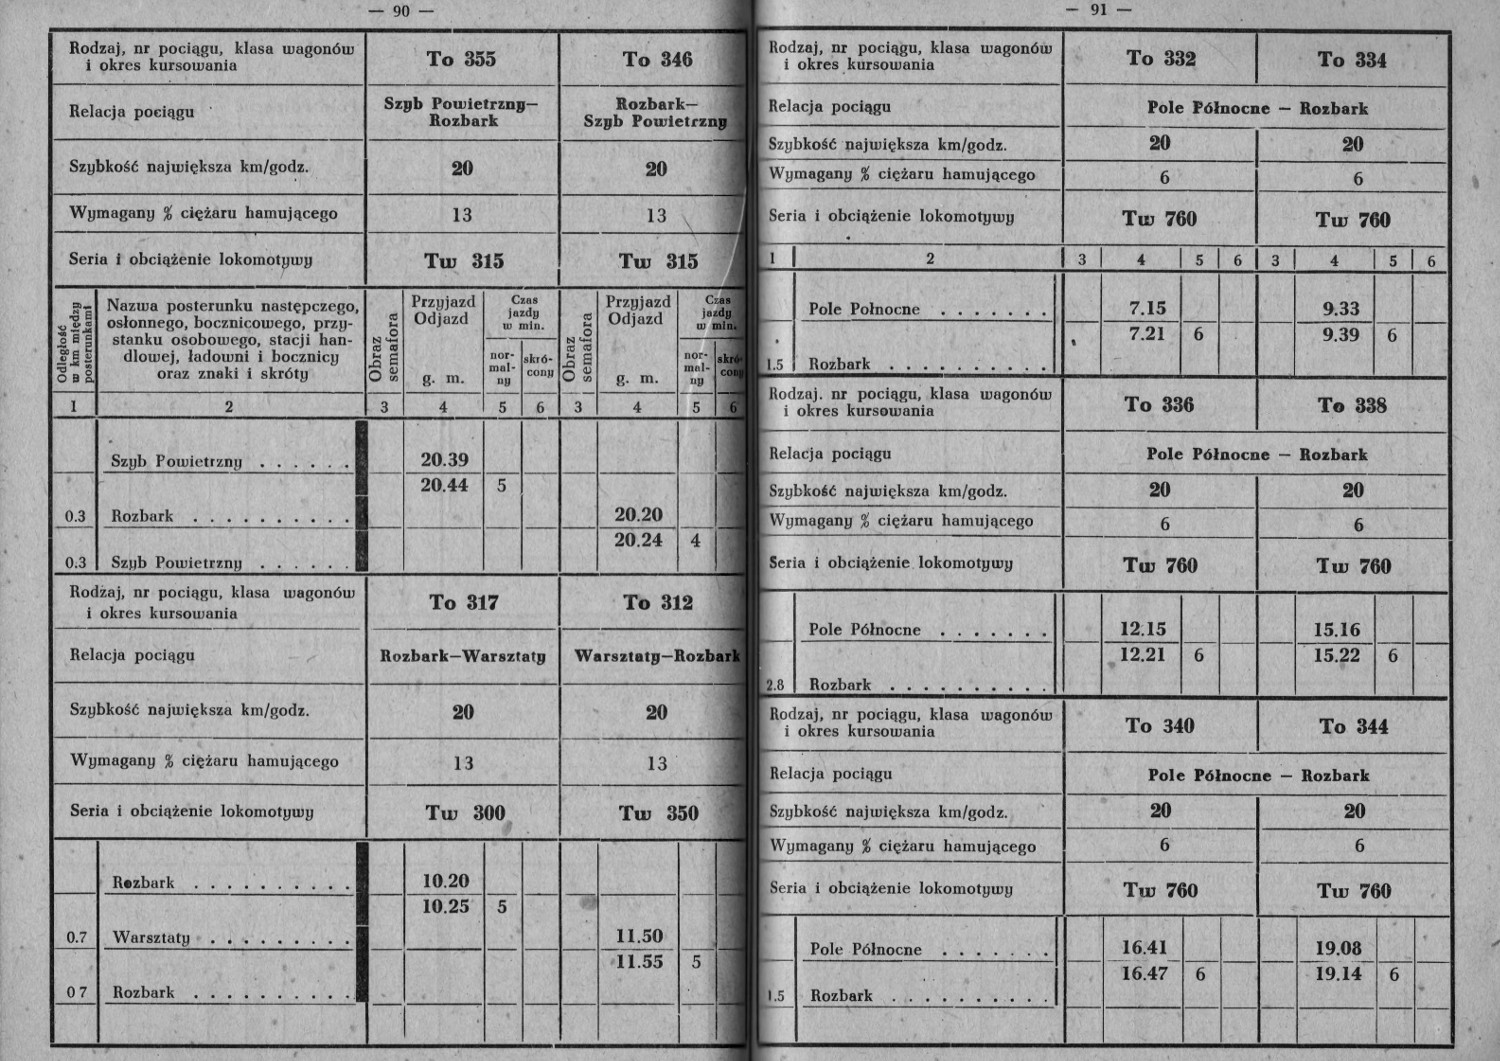 — 90 —
Rodzaj, nr pociągu, klasa wagonów
i okres kursowania
To 355
To 346
Relacja pociągu
Szyb Powietrzny—
Rozbark
Rozbark—
Szyb Powietrzny
Szybkość największa km/godz.
20
20
Wymagany % ciężaru hamującego
13
13
Seria i obciążenie lokomotywy
Tw 315
Tw 315
Odległość
w km między
posterunkami
Nazwa posterunku następczego,
osłonnego, bocznicowego, przy-
stanku osobowego, stacji han-
dlowej, ładowni i bocznicy
oraz znaki i skróty
Obraz
semafora
Przyjazd
Odjazd
g. m.
Czas
jazdy
w min.
nor-
mal-
ny
skró-
cony
Obraz
semafora
Przyjazd
Odjazd
g. m.
Czas
jazdy
w min.
nor-
mal-
ny
skró-
cony
1 2 3 4 5 6 3 4 5 6
Szyb Powietrzny . . . . . .
20.39
20.44 5
0.3 Rozbark . . . . . . . . . .
20.20
20.24 4
0.3 Szyb Powietrzny . . . . . .
Rodzaj, nr pociągu, klasa wagonów
i okres kursowania
To 317
To 312
Relacja pociągu
Rozbark—Warsztaty
Warsztaty—Rozbark
Szybkość największa km/godz.
20
20
Wymagany % ciężaru hamującego
13
13
Seria i obciążenie lokomotywy
Tw 300
Tw 350
Rozbark . . . . . . . . . .
10.20
10.25 5
0.7 Warsztaty . . . . . . . . .
11.50
11.55 5
0 7 Rozbark . . . . . . . . . .
— 91 —
Rodzaj, nr pociągu, klasa wagonów
i okres kursowania
To 332
To 334
Relacja pociągu
Pole Północne — Rozbark
Szybkość największa km/godz.
20
20
Wymagany % ciężaru hamującego
6
6
Seria i obciążenie lokomotywy
Tw 760
Tw 760
1 2 3 4 5 6 3 4 5 6
Pole Połnocne . . . . . . .
7.15
9.33
7.21 6
9.39 6
1.5 Rozbark . . . . . . . . . .
Rodzaj. nr pociągu, klasa wagonów
i okres kursowania
To 336
To 338
Relacja pociągu
Pole Północne — Rozbark
Szybkość największa km/godz.
20
20
Wymagany % ciężaru hamującego
6
6
Seria i obciążenie lokomotywy
Tw 760
Tw 760
Pole Północne . . . . . . .
12.15
15.16
12.21 6
15.22 6
2.8 Rozbark . . . . . . . . . .
Rodzaj, nr pociągu, klasa wagonów
i okres kursowania
To 340
To 344
Relacja pociągu
Pole Północne — Rozbark
Szybkość największa km/godz.
20
20
Wymagany % ciężaru hamującego
6
6
Seria i obciążenie lokomotywy
Tw 760
Tw 760
Pole Północne . . . . . . .
16.41
19.08
16.47 6
19.14 6
1.5 Rozbark . . . . . . . . . .